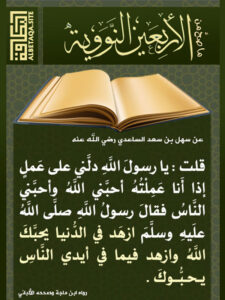 البطاقة
ALBETAQA.SITE
ما صح من
الأربعين النووية
عن سهل بن سعد الساعدي رضي الله عنه
قلت : يا رسولَ اللَّهِ دلَّني على عَملٍ
إذا أنا عَمِلْتُهُ أحبَّني اللَّهُ وأحبَّني
النَّاسُ فقالَ رسولُ اللَّهِ صلَّى اللَّهُ
عليهِ وسلَّمَ ازهَد في الدُّنيا يحبَّكَ
اللَّهُ وازهد فيما في أيدي النَّاسِ
يحبُّوكَ .
رواه ابن ماجة وصححه الألباني